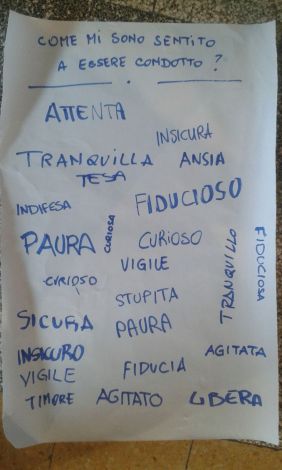 COME MI SONO SENTITO
A ESSERE CONDOTTO ?
ATTENTA
INSICURA
TRANQUILLA ANSIA
TESA
INDIFESA FIDUCIOSO
PAURA CURIOSA CURIOSO
VIGILE
CURIOSO
STUPITA
TRANQUILLO
FIDUCIOSA
SICURA PAURA
INSICURO AGITATA
VIGILE FIDUCIA
TIMORE AGITATO LIBERA